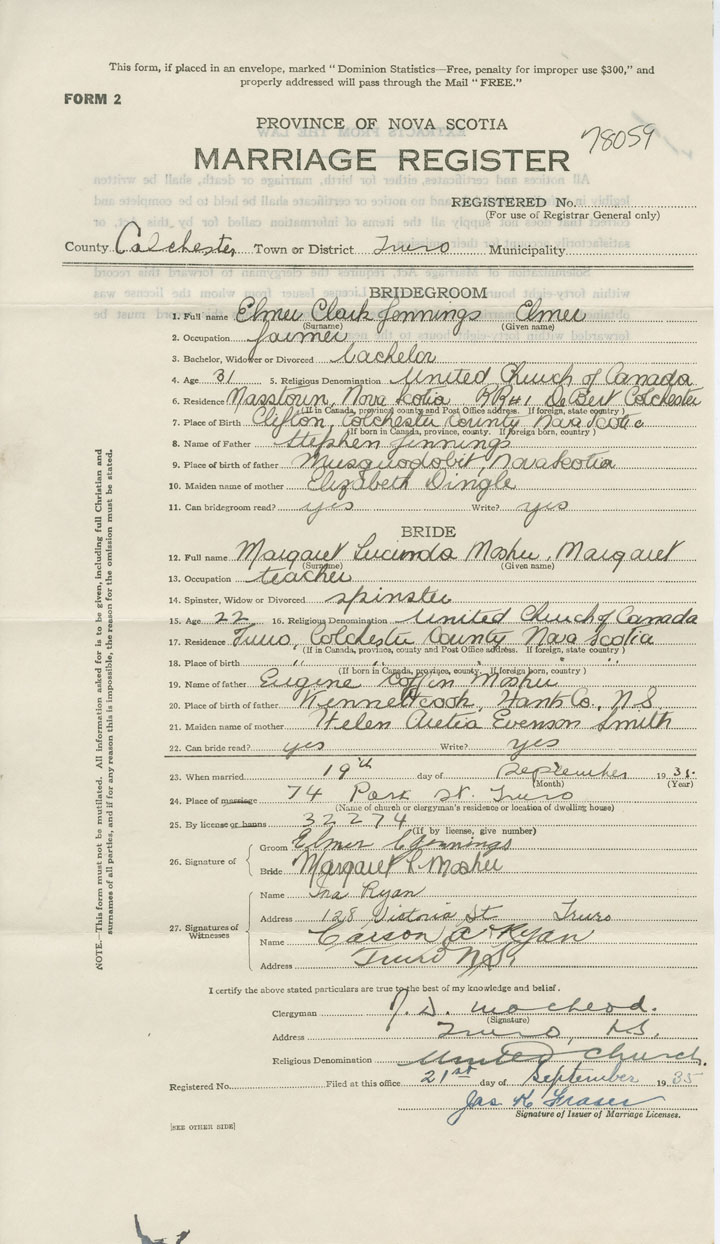 This form, if placed in an envelope, marked " Dominion Statistics—Free, penalty for improper use $300," and
properly addressed will pass through the Mail " FREE."
FORM 2
PROVINCE OF NOVA SCOTIA
78059
MARRIAGE REGISTER
REGISTERED No.
(For use of Registrar General only)
County Colchester Town or District Truro Municipality
BRIDEGROOM
1. Full name Elmer Clark Jennings Elmer
(Surname) (Given name)
2. Occupation farmer
3. Bachelor, Widower or Divorced bachelor
4. Age 31 5. Religious Denomination United Church of Canada
6. Residence Masstown, Nova Scotia RR#1 DeBert Colchester
(If in Canada, province, county and Post Office address. If foreign, state country)
7. Place of Birth Clifton, Colchester County Nova Scotia
(If born in Canada, province, county. If foreign born, country)
8. Name of Father Stephen Jennings
9. Place of birth of father Musquodobit, Nova Scotia
10. Maiden name of mother Elizabeth Dingle
11. Can bridegroom read? yes Write? yes
BRIDE
12. Full name Margaret Lucinda Mosher, Margaret
(Surname) (Given name)
13. Occupation teacher
14. Spinster, Widow or Divorced spinster
15. Age 22 16. Religious Denomination United Church of Canada
17. Residence Truro, Colchester County Nova Scotia
(If in Canada, province, county and Post Office address. If foreign, state country)
18. Place of birth " " " " "
(If born in Canada, province, county. If foreign born, country)
19. Name of father Eugene Coffin Mosher
20. Place of birth of father Kennetcook, Hants Co., N.S.
21. Maiden name of mother Helen Aletia Evenson Smith
22. Can bride read? yes Write? yes
23. When married 19th day of September 1935.
(Month) (Year)
24. Place of marriage 74 Park St. Truro
(Name of church or clergyman's residence or location of dwelling house)
25. By license or banns 32274
(If by license, give number)
26. Signature of
Groom Elmer C Jennings
Bride Margaret L Mosher
27. Signatures of Witnesses
Name Ina Ryan
Address 128 Victoria St Truro
Name Carson A Ryan
Address Truro N.S.
I certify the above stated particulars are true to the best of my knowledge and belief.
Clergyman J. D. MacLeod.
(Signature)
Address Truro, N.S.
Religious Denomination United Church.
Registered No. Filed at this office 21st day of September 1935
Jas K Fraser
Signature of Issuer of Marriage Licenses.
[SEE OTHER SIDE]
NOTE.—This form must not be mutilated. All information asked for is to be given, including full Christian and
surnames of all parties, and if for any reason this is impossible, the reason for the omission must be stated.